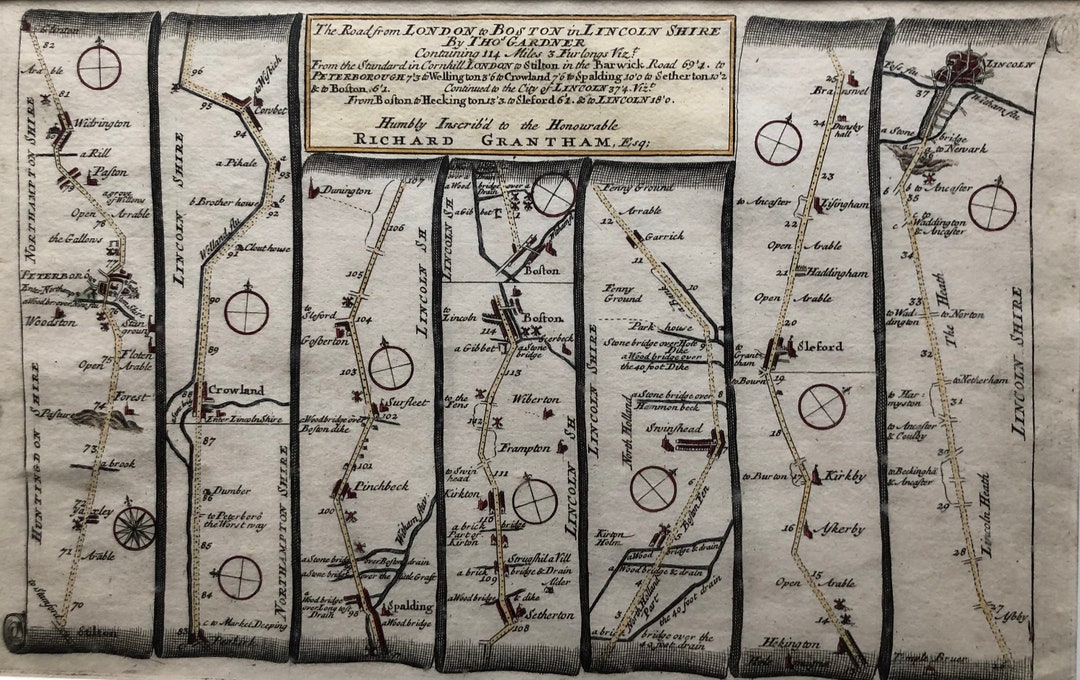 The Road from LONDON to BOSTON in LINCOLN SHIRE
By THOS. GARDNER
Containing 114 Miles 3 Furlongs Vizt.
From the Standard in Cornhill LONDON to Stilton in the Barwick Road 69'4. to
PETERBOROUGH 7'3 to Wellington 3'6 to Crowland 7'6 to Spalding 10'0 to Setherton 10'2
& to Boston 6'1. Continued to the City of LINCOLN 37'4. Vizt.
From Boston to Heckington 13'3. to Sleford 6'1. & to LINCOLN 18'0.
Humbly Inscrib'd to the Honourable
RICHARD GRANTHAM, Esq;
82
Arable
81
NORTHAMPTON SHIRE
Widrington
a Rill
Paston
a grove of Willows
Open Arrable
78
the Gallows
77
PETERBORO
Woodston
Stan ground
75
Floten
Open Arable
Forest
Pasture
74
73
a brook
HUNTINGDON SHIRE
Yaxley
71
Arable
70
Stilton
96
to Wisbich
95
Cowbet
94
LINCOLN SHIRE
a Pihale
93
b Brother house
92
Welland flu
91
Clout house
90
89
88
Crowland
Enter Lincoln Shire
87
Dumber
86
to Peterboro the Worst way
85
NORTHAMPTON SHIRE
84
c to Market Deeping
83
107
Dunington
106
LINCOLN SH
105
to Sleford
104
Gosberton
Surfleet
102
a Wood bridge over Boston dike
101
Pinchbeck
100
Witham flu:
a Stone bridge over Boston drain
a Stone bridge over the little Graft
98
Spalding
a Wood bridge
LINCOLN SH
a Gibbet
Boston
to Lincoln
Boston
114
a Gibbet
a Stone bridge
113
to the Fens
Wiberton
112
Frampton
LINCOLN SH
111
to Swinhead
Kirkton
110
a brick bridge
Part of Kirton
Strugshil a Vill
a brick bridge & Drain
109
Alder
a Wood bridge & dike
Setherton
108
Fenny Ground
Arrable
12
Garrick
11
Fenny Ground
10
a Bank
Park house
9
Stone bridge over Hole Dike
a Wood bridge over the 40 foot Dike
LINCOLN SHIRE
a Stone bridge over Hammon beck
8
North Holland
Swinshead
7
6
Boston Fen
5
Kirton Holm
a Wood bridge & drain
a Wood bridge & drain
North Holland Part
the 40 foot drain
3
a brick bridge over the 40 foot drain
25
Branswel
24
Dunsby hall
23
to Ancaster
22
Open Arable
21
Haddingham
Open Arable
20
to Grantham
Sleford
to Bourn
19
18
to Burton
17
Kirkby
16
Askerby
15
Open Arable
14
Hekington
LINCOLN
Foss flu
37
Witham flu.
a Stone bridge
a to Newark
36
b b to Ancaster
35
to Waddington & Ancaster
c
34
The Heath
33
to Waddington
to Norton
32
LINCOLN SHIRE
to Netherham
to Harmyston
31
to Ancaster & Coulby
30
to Beckingha & Ancaster
29
Lincoln Heath
28
27
Ashby
Temple Bruer